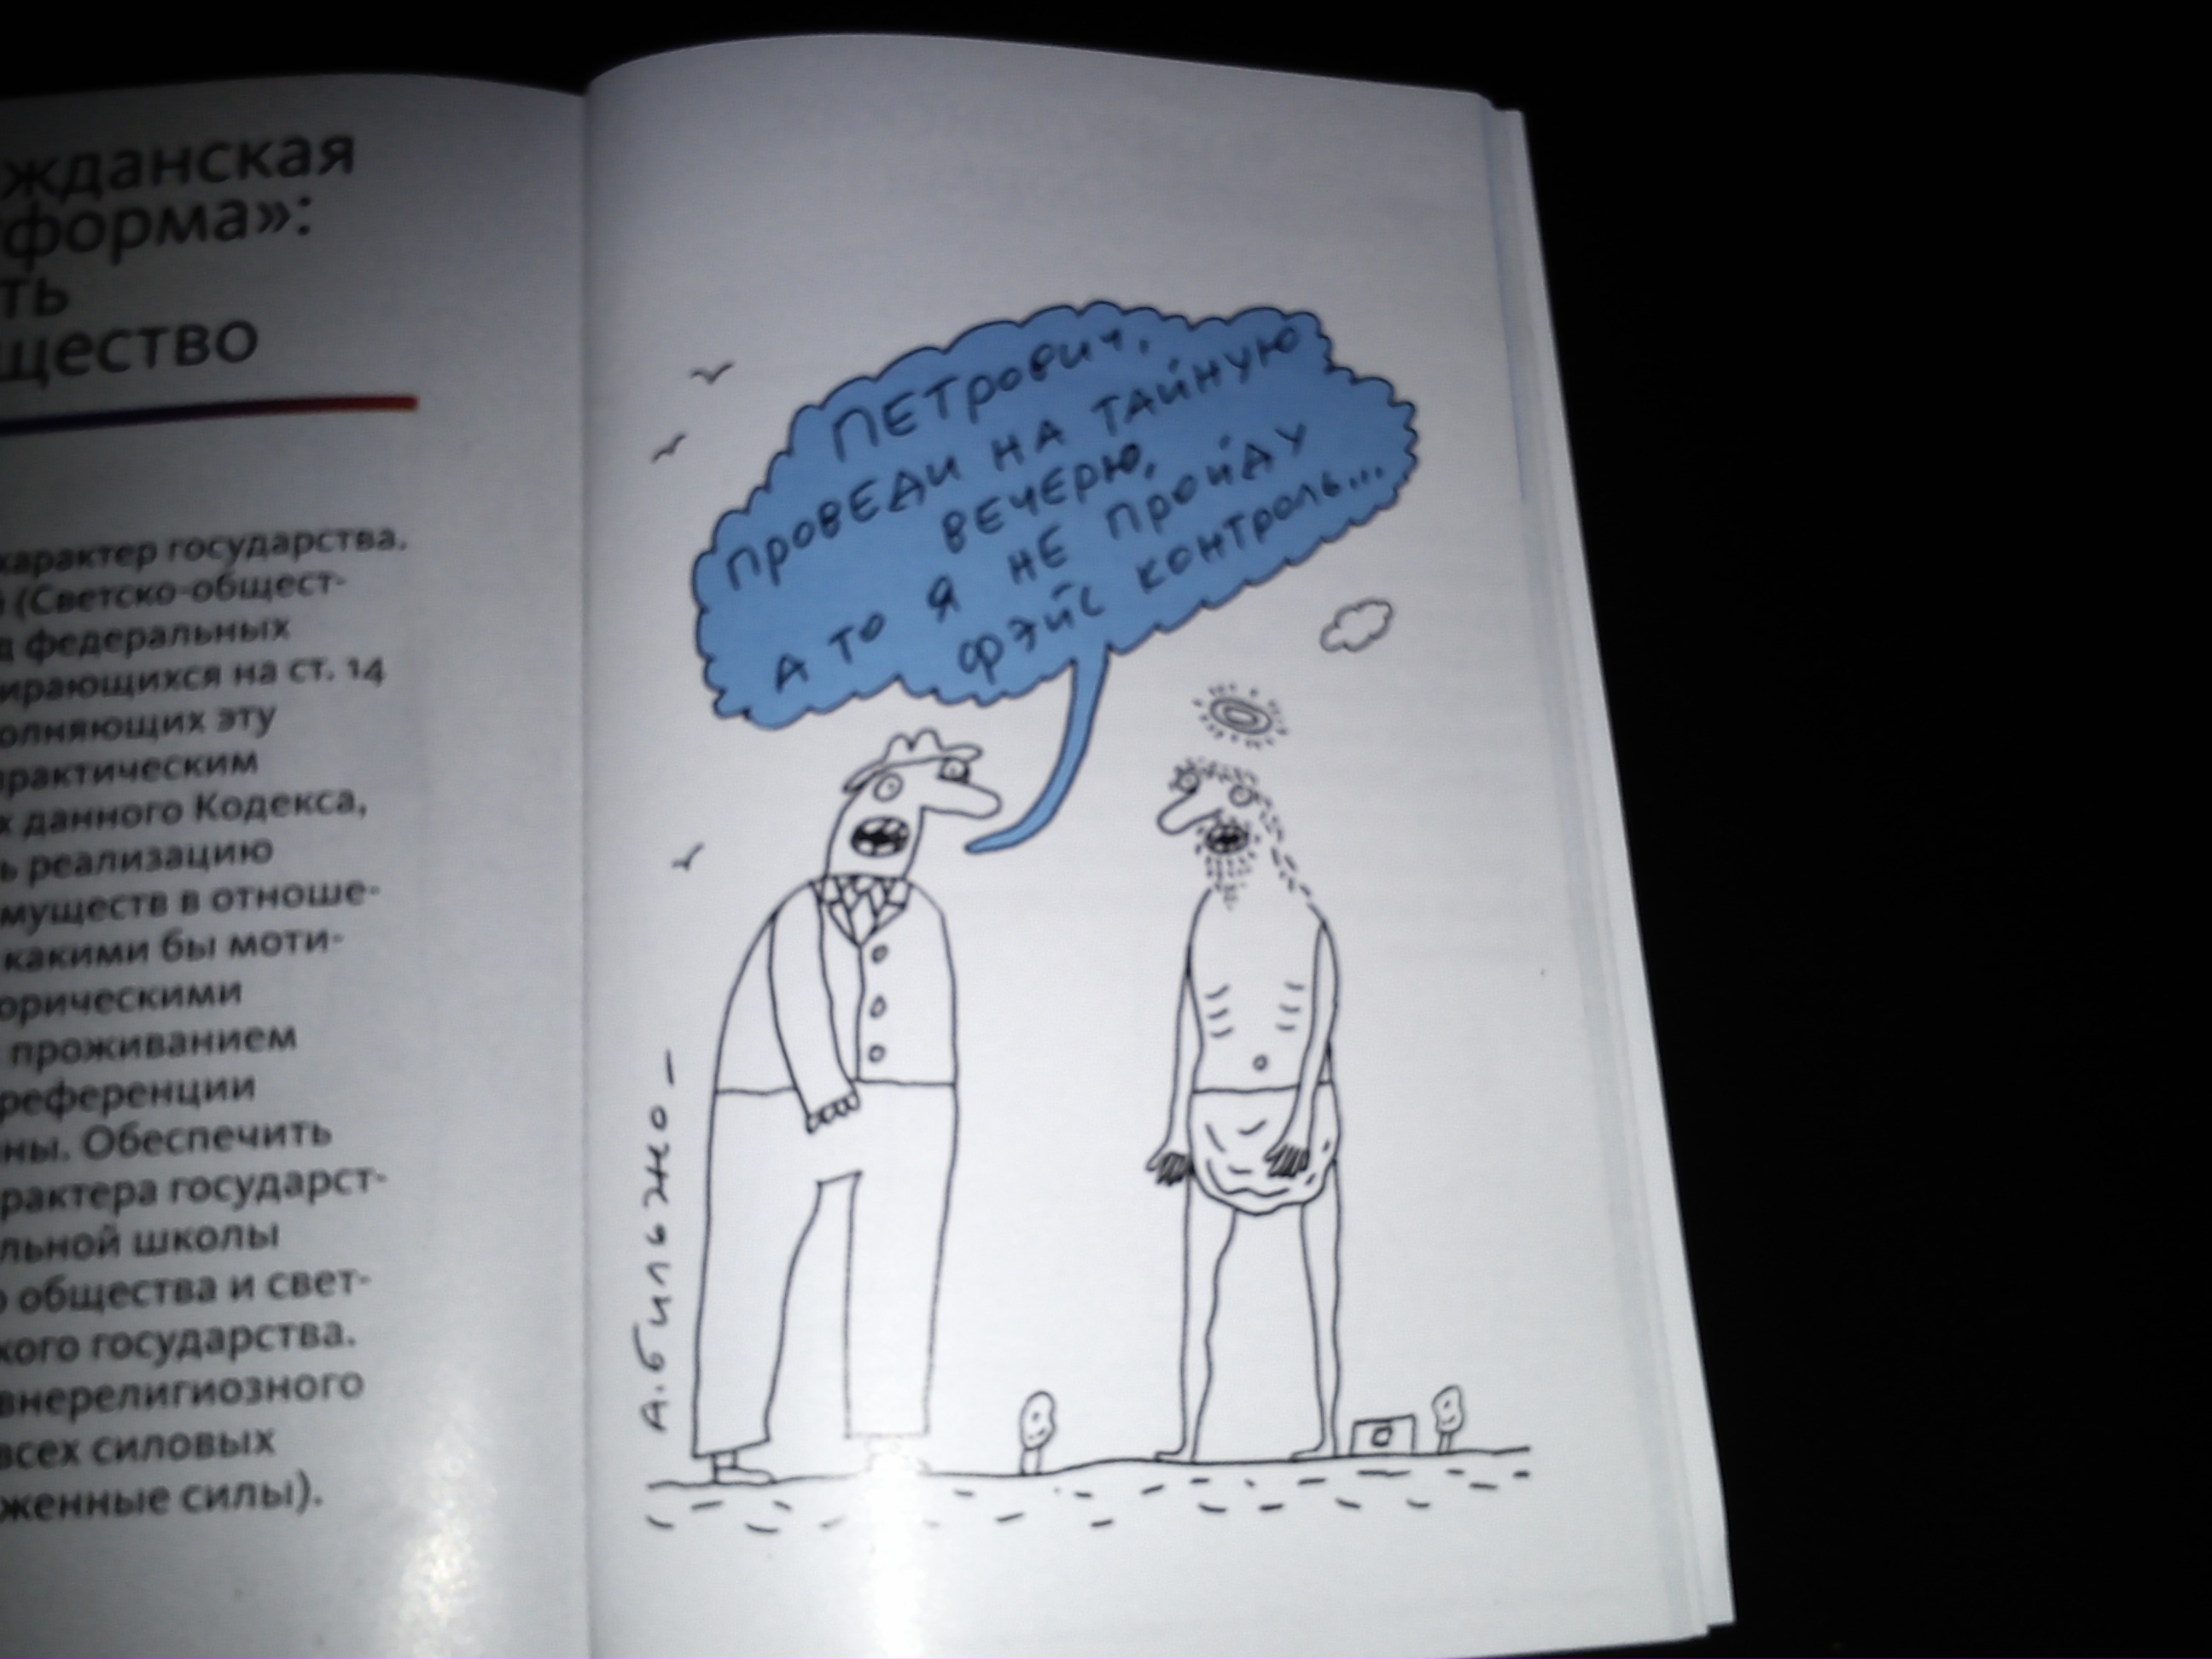 жданская
форма»:
ть
щество
характер государства.
(Светско-общест-
д федеральных
ирающихся на ст. 14
олняющих эту
рактическим
х данного Кодекса,
ь реализацию
муществ в отноше-
какими бы моти-
орическими
проживанием
референции
ны. Обеспечить
рактера государст-
льной школы
о общества и свет-
кого государства.
внерелигиозного
всех силовых
женные силы).
ПЕТРОВИЧ,
ПРОВЕДИ НА ТАЙНУЮ
ВЕЧЕРЮ,
А ТО Я НЕ ПРОЙДУ
ФЭЙС КОНТРОЛЬ...
А.БИЛЬЖО